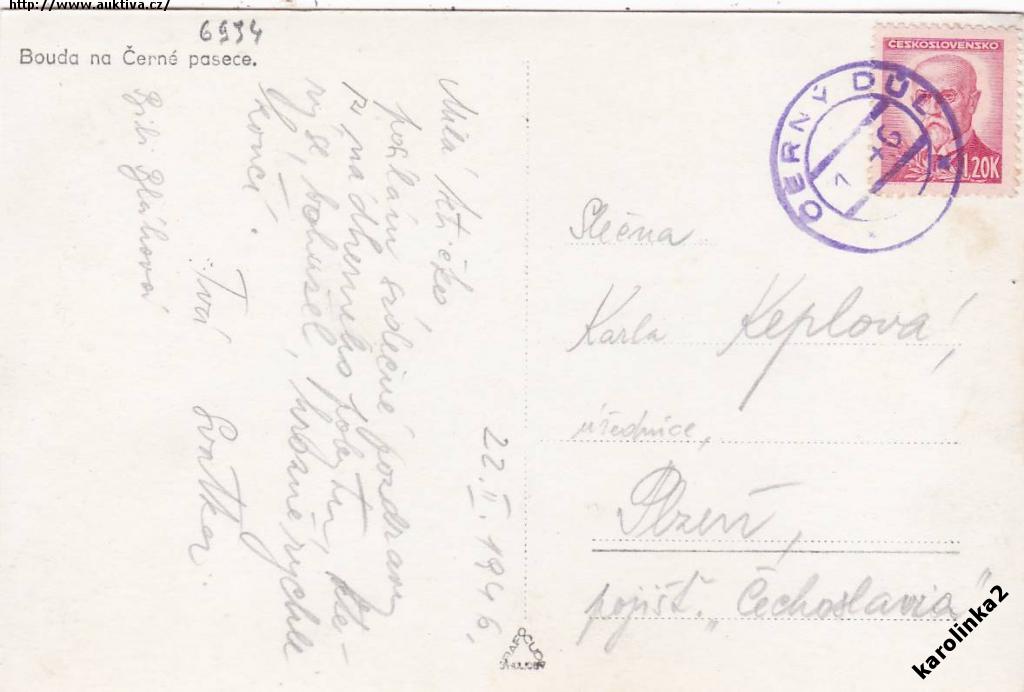 http://www.auktiva.cz/
6934
Bouda na Černé pasece.
22. II. 1946.
Milá
posílám srdečné pozdravy
z nádherného pobytu, kte-
rý se, bohužel, hrozně rychle
končí.
Tvá
Bláhová
ČESKOSLOVENSKO
1,20K
ČERNÝ DŮL
Slečna
Karla Keplová,
úřednice,
Plzeň,
pojišť. „Čechoslavia"
karolinka2